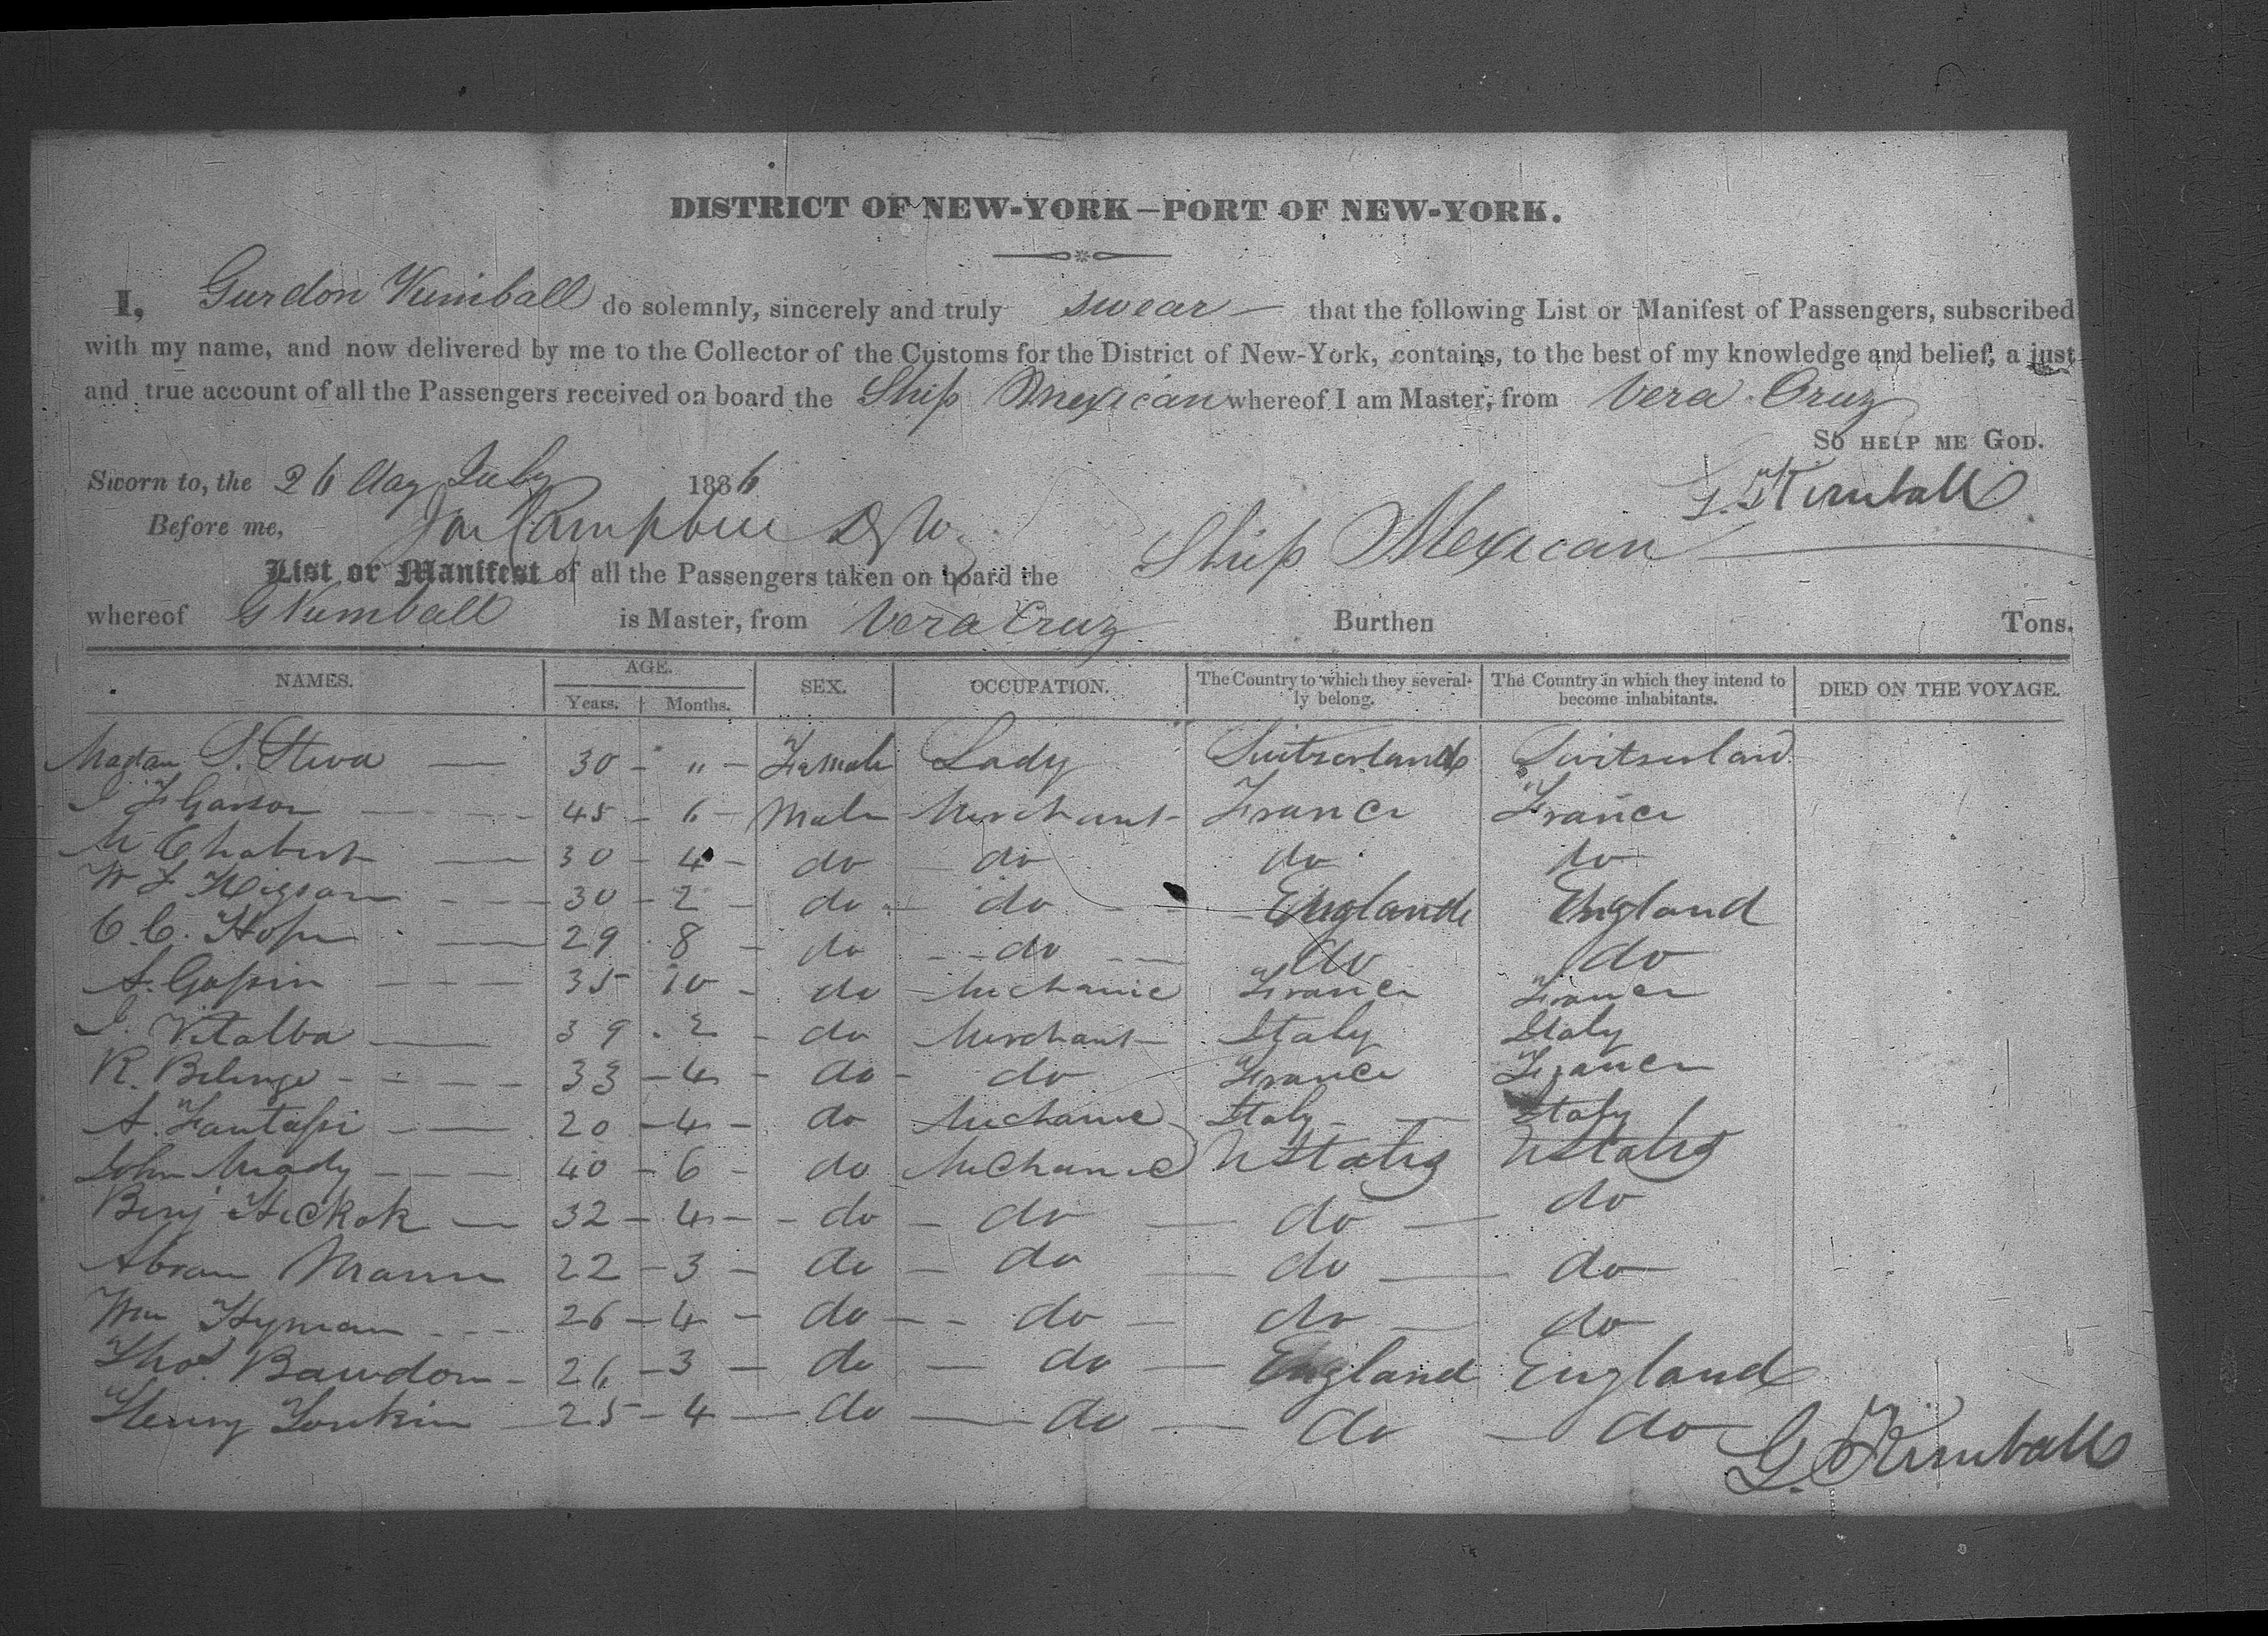 DISTRICT OF NEW-YORK—PORT OF NEW-YORK.
I, Gurdon Kimball do solemnly, sincerely and truly swear — that the following List or Manifest of Passengers, subscribed
with my name, and now delivered by me to the Collector of the Customs for the District of New-York, contains, to the best of my knowledge and belief, a just
and true account of all the Passengers received on board the Ship Mexican whereof I am Master, from Vera Cruz
SO HELP ME GOD.
Sworn to, the 26 day July 1836 G. Kimball
Before me, Campbell
List or Manifest of all the Passengers taken on board the Ship Mexican
whereof G Kimball is Master, from Vera Cruz Burthen Tons.
NAMES. AGE. Years. Months. SEX. OCCUPATION. The Country to which they severally belong. The Country in which they intend to become inhabitants. DIED ON THE VOYAGE.
30 - " - Female Lady Switserland Switserland
45 - 6 - Male Merchant France France
M Chabert 30 - 4 - do do do do
30 - 2 - do do England England
C. C. Hope 29 8 - do do do do
35 10 - do Mechanic France France
J. Vitalba 39 . 2 - do Merchant Italy Italy
R. 33 - 4 - do do France France
A. Fantassi 20 - 4 - do Mechanic Italy Italy
John 40 - 6 - do Mechanic U States U States
Benj Hickok 32 - 4 - do do do do
Abram Mann 22 - 3 - do do do do
Wm Hyman 26 - 4 - do do do do
Thos. Bawdon 26 - 3 - do do England England
Henry Tonkin 25 - 4 - do do do do
G. Kimball